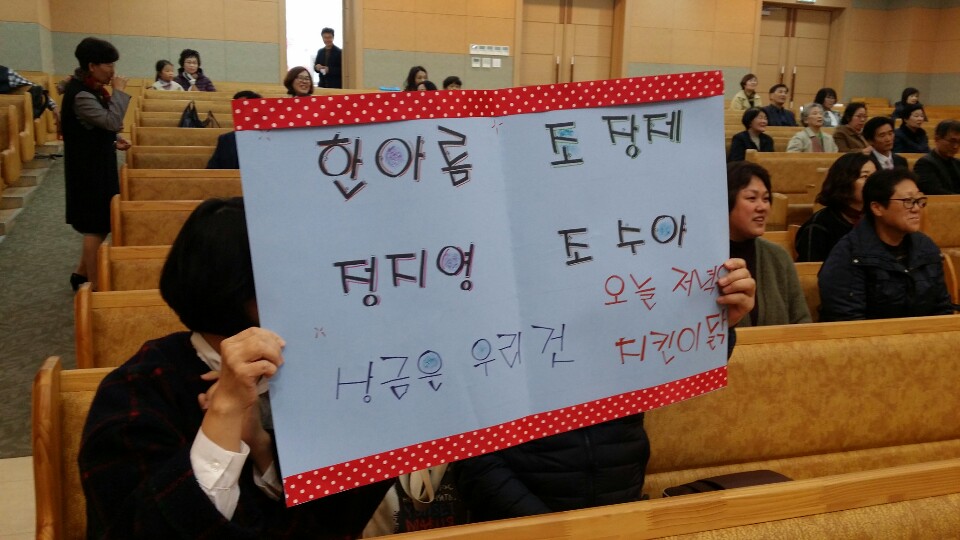 한아름 조
정지영 조수아
상금은 우리 건
오늘 저녁은
치킨이닭